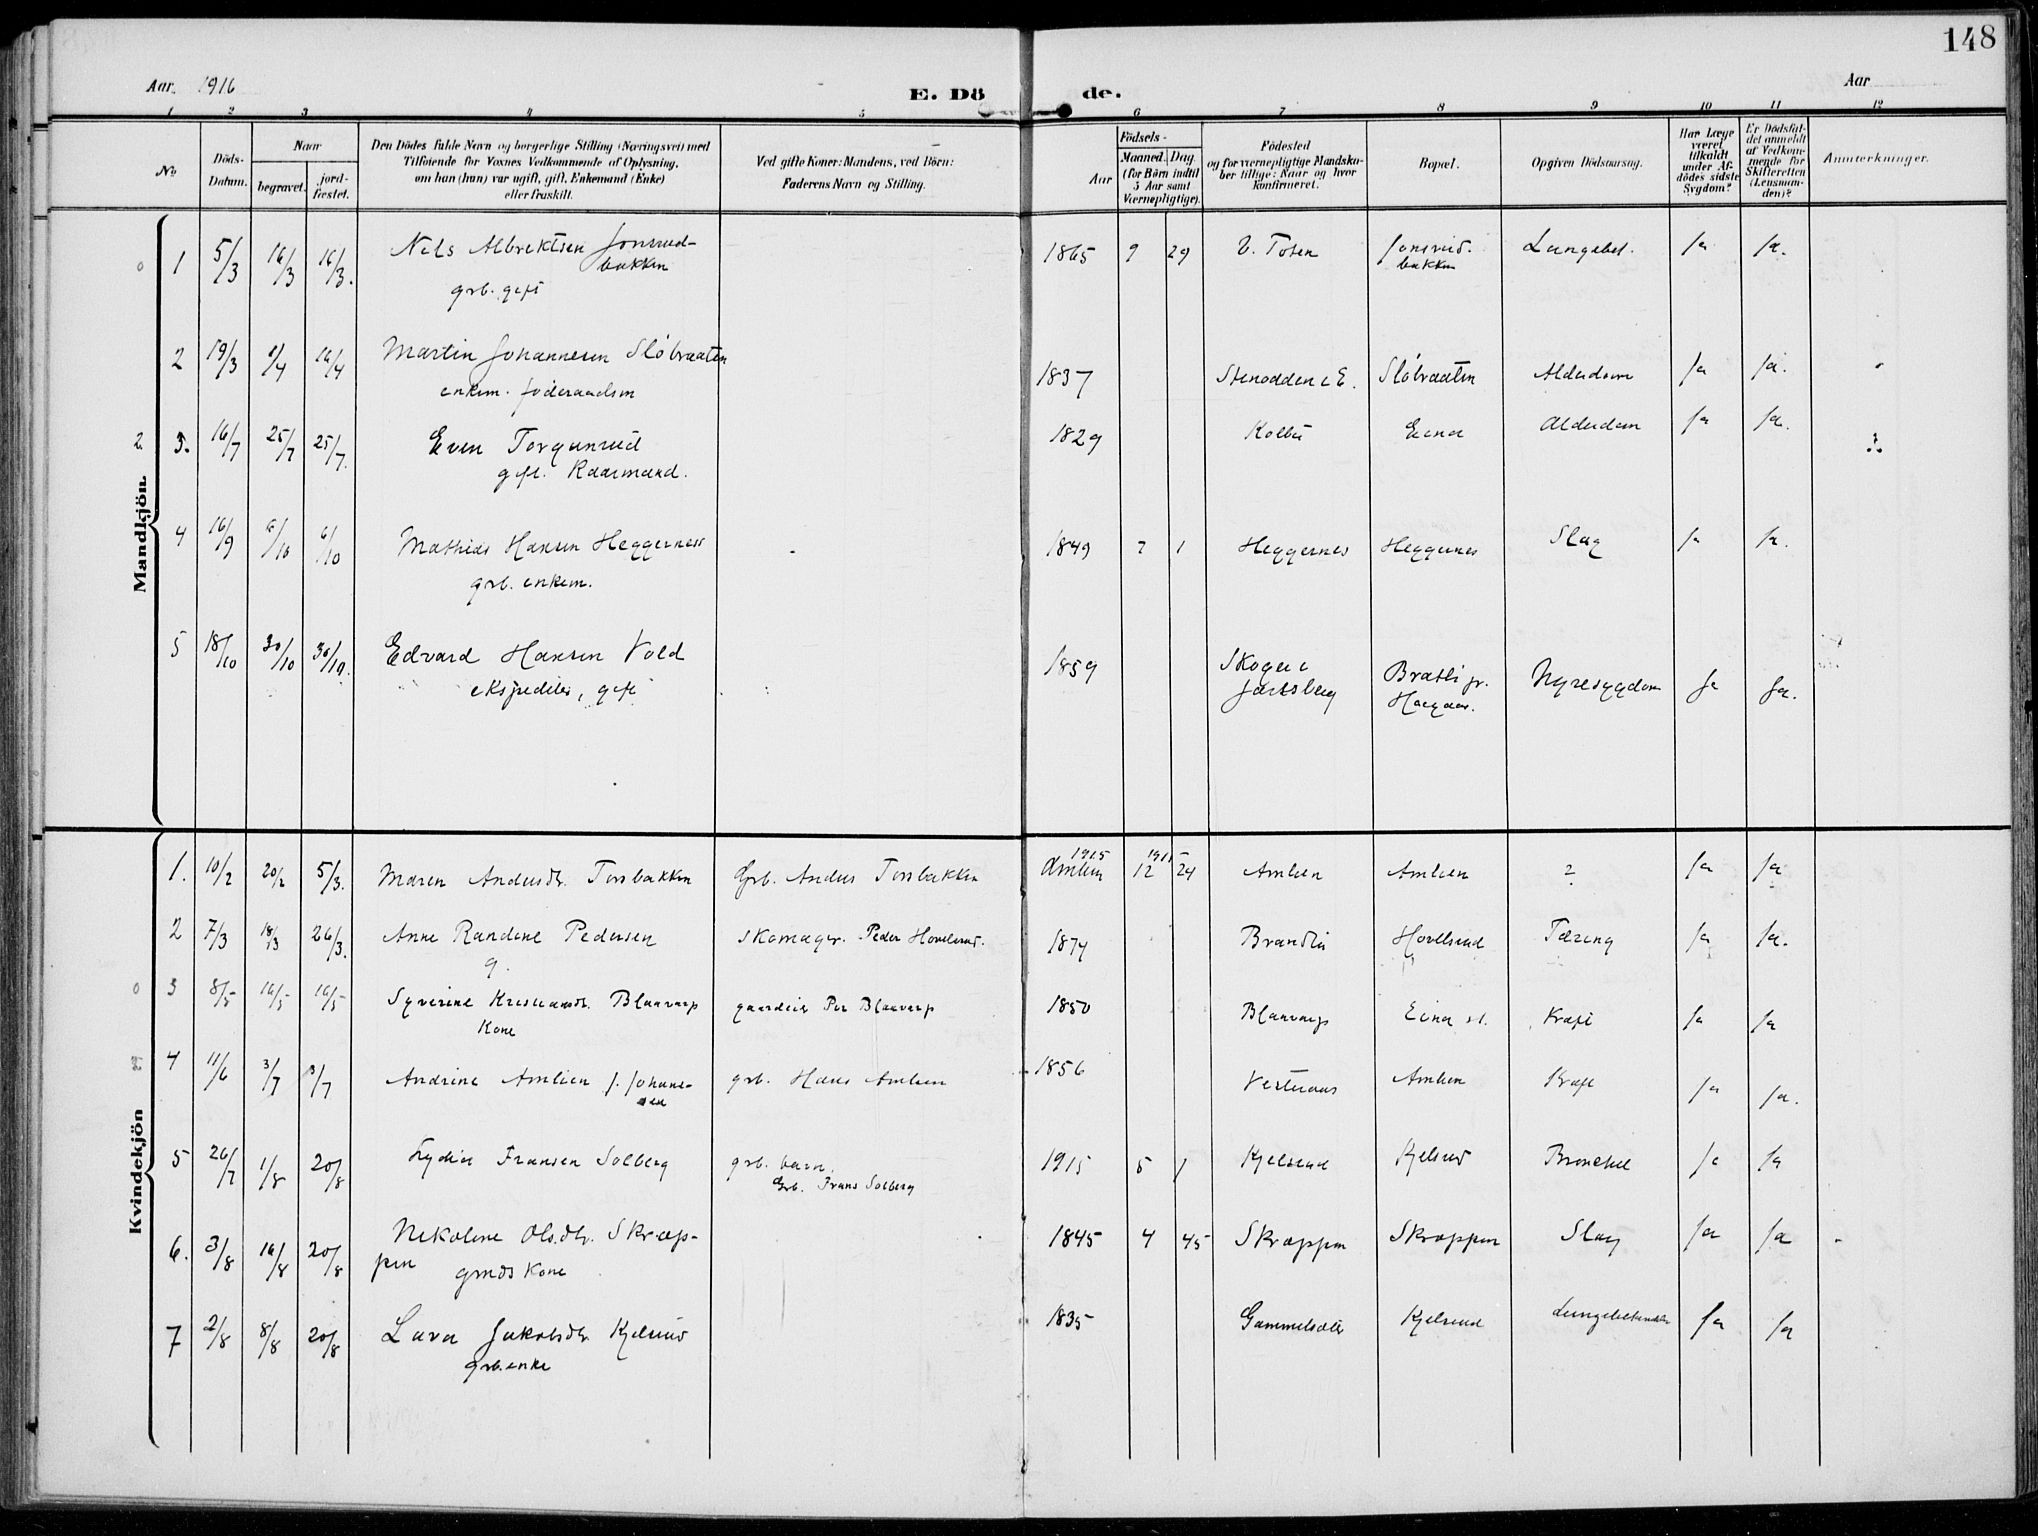 148
Aar 1916
E. Dö de.
Aar
1 2 3 4 5 6 7 8 9 10 11 12
No
Döds-Datum.
Naar
begravet.
jord-fæstet.
Den Dödes fulde Navn og borgerlige Stilling (Næringsvei) med
Tilföiende for Voxnes Vedkommende af Oplysning,
om han (hun) var ugift, gift, Enkemand (Enke)
eller fraskilt.
Ved gifte Koner: Mandens, ved Börn:
Faderens Navn og Stilling.
Födsels-
Aar
Maaned. Dag
(for Börn indtil
5 Aar samt
Værnepligtige).
Födested
og for værnepligtige Mandska-
ber tillige: Naar og hvor
konfirmeret.
Bopæl.
Opgiven Dödsaarsag.
Har Læge
været
tilkaldt
under Af-
dödes sidste
Sygdom?
Er Dödsfal-
det anmeldt
af Vedkom-
mende for
Skifteretten
(Lensman-
den)?
Anmærkninger.
Mandkjön.
1 5/3 16/3 16/3. Nils Albrektsen Jonsrud-
bakken
grb. gift
1865 9 29 V. Toten Jonsrud-
bakken
Lungebet. ja ja.
2 19/3 1/4 16/4 Martin Johannesen Slöbraaten
enkem.föderaadsm
1837 Stenodden i E. Slöbraaten Alderdom ja ja.
3. 16/7 25/7 25/7. Even Torgunrud
gift. Kaarmand.
1829 Kolbu Eina Alderdom ja ja.
4 16/9 6/10 6/10 Mathias Hansen Heggerness
grb. enkem.
1849 7 1 Heggernes Heggernes Slag ja ja.
5 18/10 30/10 30/10. Edvard Hansen Vold
ekspeditör, gift
1859 Skoger i
Jarlsberg
Bratli pr.
Haagaar.
Nyresygdom ja ja.
Kvindekjön
1. 10/2 20/2 5/3. Maren Andersdt. Torsbakken Grb. Anders Torsbakken 1915 12 24 Amlien Amlien ? ja ja
2 7/3 18/3 26/3. Anne Randine Pedersen
g.
Skomager. Peder Hovelsrud. 1874 Brandlie Hovelsrud Tæring ja ja.
3 8/5 16/5 16/5 Syverine Kristiansdt. Blaavarp
Kone
gaardeier Per Blaavarp 1850 Blaavarp Eina st. Kræft ja ja
4 11/6 3/7 3/7 Andrine Amlien f. Johan-
sen
grb. Hans Amlien 1856 Vesteraas Amlien Kræft ja ja.
5 26/7 1/8 20/8 Lydia Fransen Solberg grb. barn.
Grb. Frans Solberg
1915 5 1 Kjelsrud Kjelsrud Bronchit ja ja
6. 3/8 16/8 20/8 Nikoline Olsdtr. Skræp-
pen
grmds Kone
1845 4 45 Skræppen Skræppen Slag ja ja
7 2/8 8/8 20/8 Lava Jakobsdtr Kjelsrud
grb. enke
1835 Gammelsæter Kjelsrud Lungebetændelse ja ja